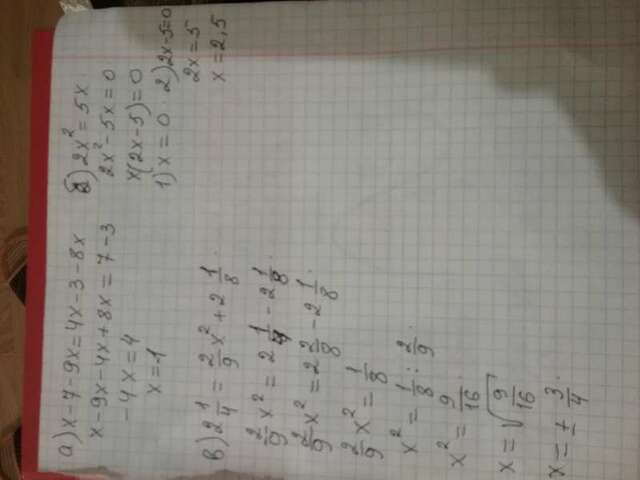 а) x-7-9x=4x-3-8x
x-9x-4x+8x=7-3
-4x=4
x=-1
б) 2x²=5x
2x²-5x=0
x(2x-5)=0
1) x=0 2) 2x-5=0
2x=5
x=2,5
в) 2 1/4 = 2/9 x² + 2 1/8
2/9 x² = 2 1/4 - 2 1/8
2/9 x² = 2 2/8 - 2 1/8
2/9 x² = 1/8
x² = 1/8 : 2/9
x² = 9/16
x = √(9/16)
x = ± 3/4